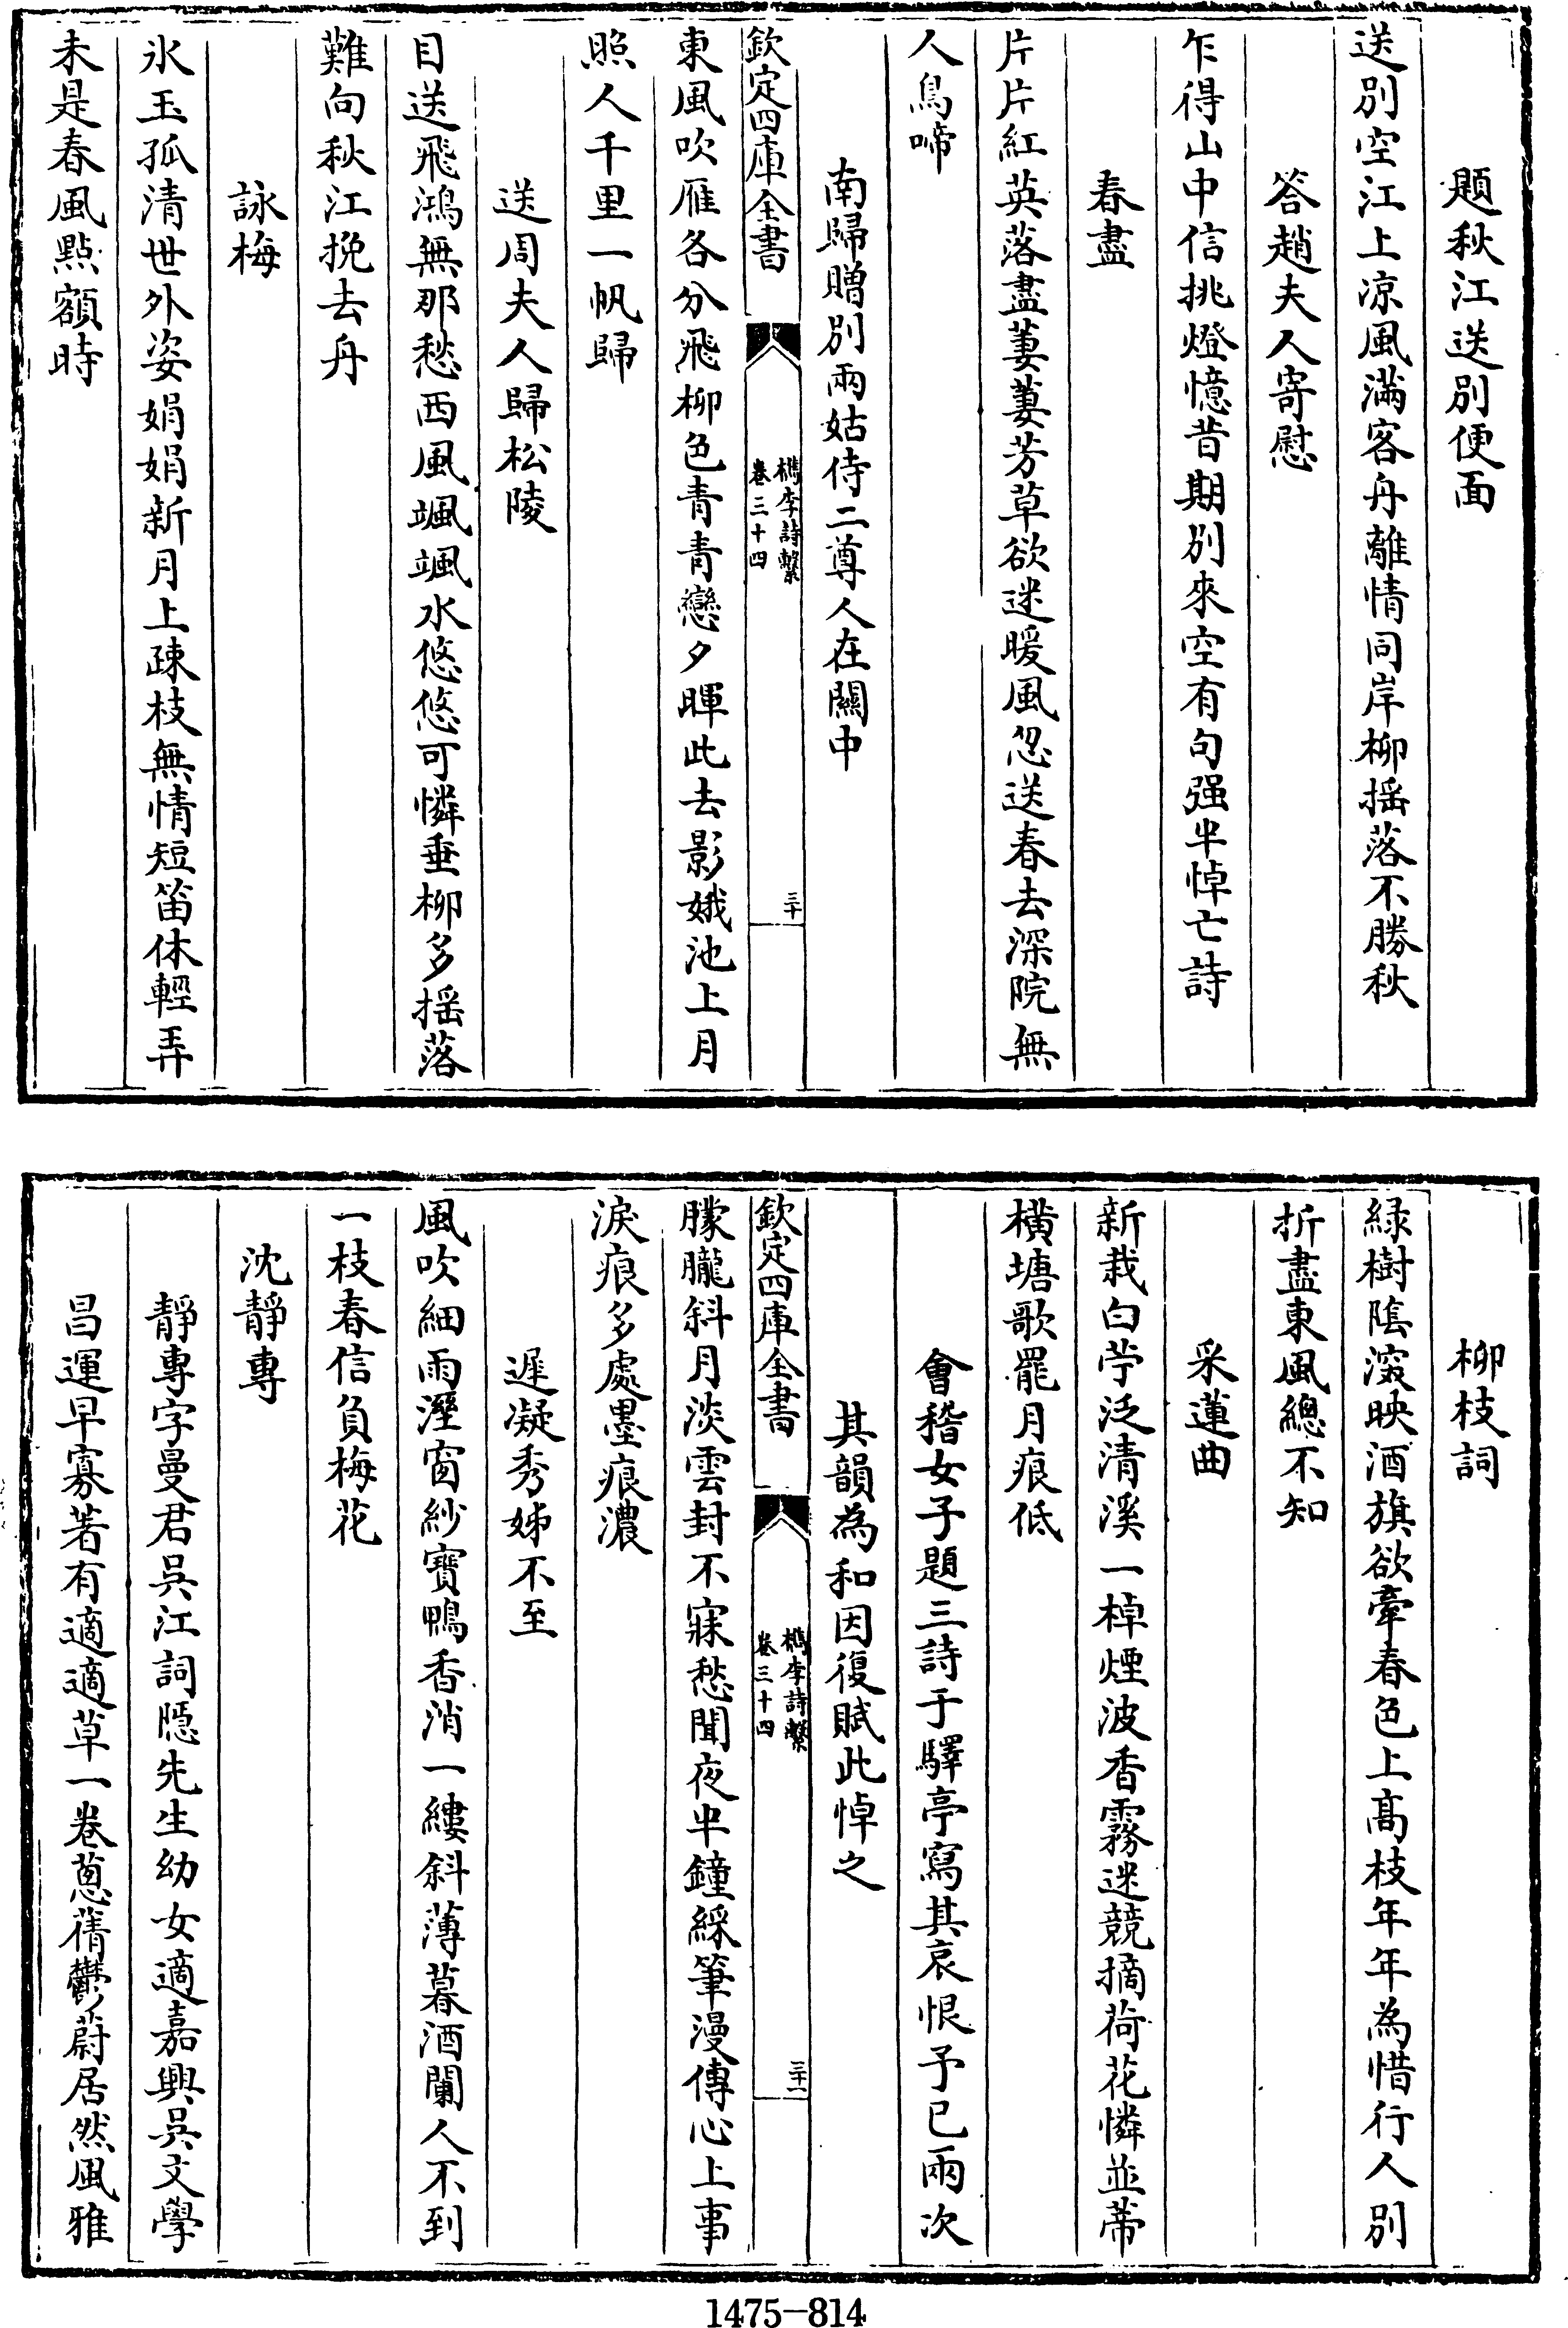 題秋江送別便面
送別空江上凉風滿客舟離情同岸柳揺落不勝秋
答趙夫人寄慰
乍得山中信挑燈憶昔期別來空有句强半悼亡詩
春盡
片片紅英落盡萋萋芳草欲迷暖風忽送春去深院無
人鳥啼
南歸贈別兩姑侍二尊人在關中
欽定四庫全書
檇李詩繫
卷三十四
三十
東風吹雁各分飛柳色青青戀夕暉此去影娥池上月
照人千里一帆歸
送周夫人歸松陵
目送飛鴻無那愁西風颯颯水悠悠可憐垂柳多揺落
難向秋江挽去舟
詠梅
氷玉孤清世外姿娟娟新月上疎枝無情短笛休輕弄
未是春風點額時
柳枝詞
緑樹隂濃映酒旗欲牽春色上髙枝年年為惜行人別
折盡東風總不知
采蓮曲
新栽白苧泛清溪一棹煙波香霧迷競摘荷花憐並蒂
橫塘歌罷月痕低
會稽女子題三詩于驛亭寫其哀恨予已兩次
其韻為和因復賦此悼之
欽定四庫全書
檇李詩繫
卷三十四
三十一
朦朧斜月淡雲封不寐愁聞夜半鐘綵筆漫傳心上事
淚痕多處墨痕濃
遲凝秀姊不至
風吹細雨溼窗紗寶鴨香消一縷斜薄暮酒闌人不到
一枝春信負梅花
沈靜專
靜專字曼君呉江詞隠先生幼女適嘉興呉文學
昌運早寡著有適適草一卷蔥蒨鬱蔚居然風雅
1475-814